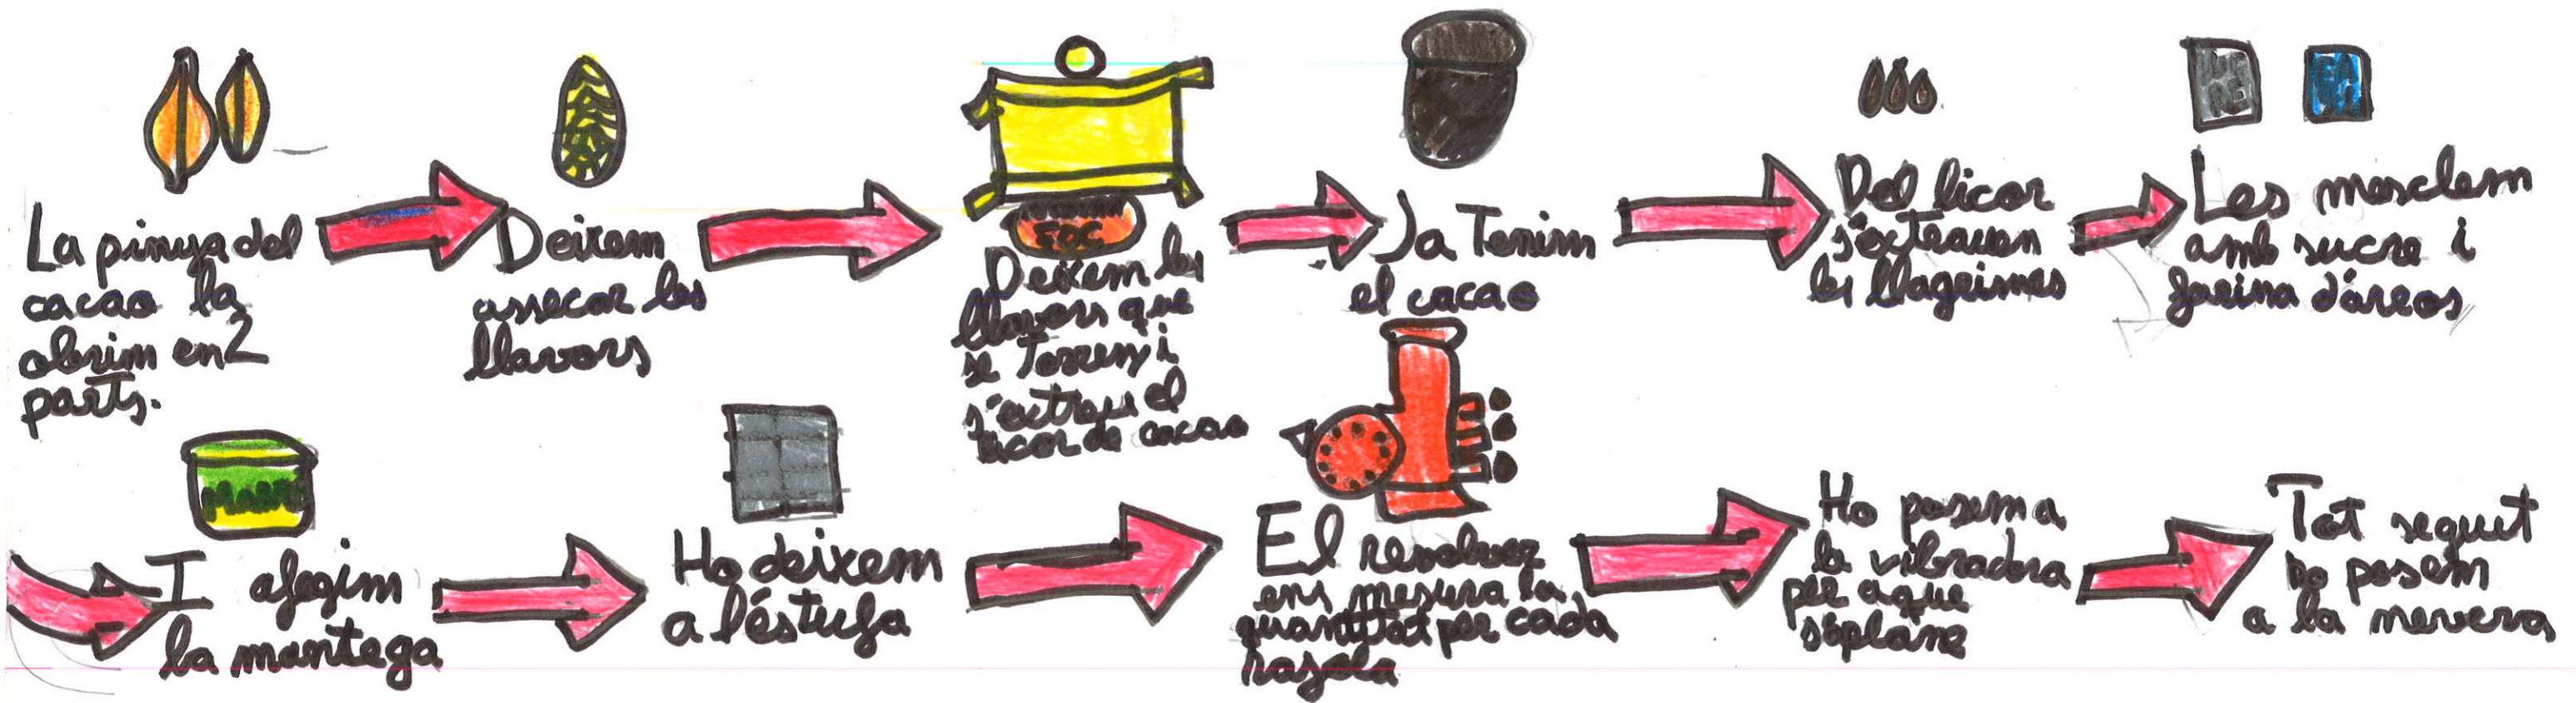 La pinya del
cacao la
obrim en 2
parts.
Deixem
assecar les
llavors
FOC
Deixem les
llavors que
se torren i
s'extreu el
licor de cacao
Ja Tenim
el cacao
Del licor
s'extreuen
les llagrimes
Les mesclem
amb sucre i
farina d'arros
I afegim
la mantega
Ho deixem
a l'estufa
El revolver
ens mesura la
quantitat per cada
rajola
Ho posem a
la vibradora
per a que
s'aplane
Tot seguit
ho posem
a la nevera